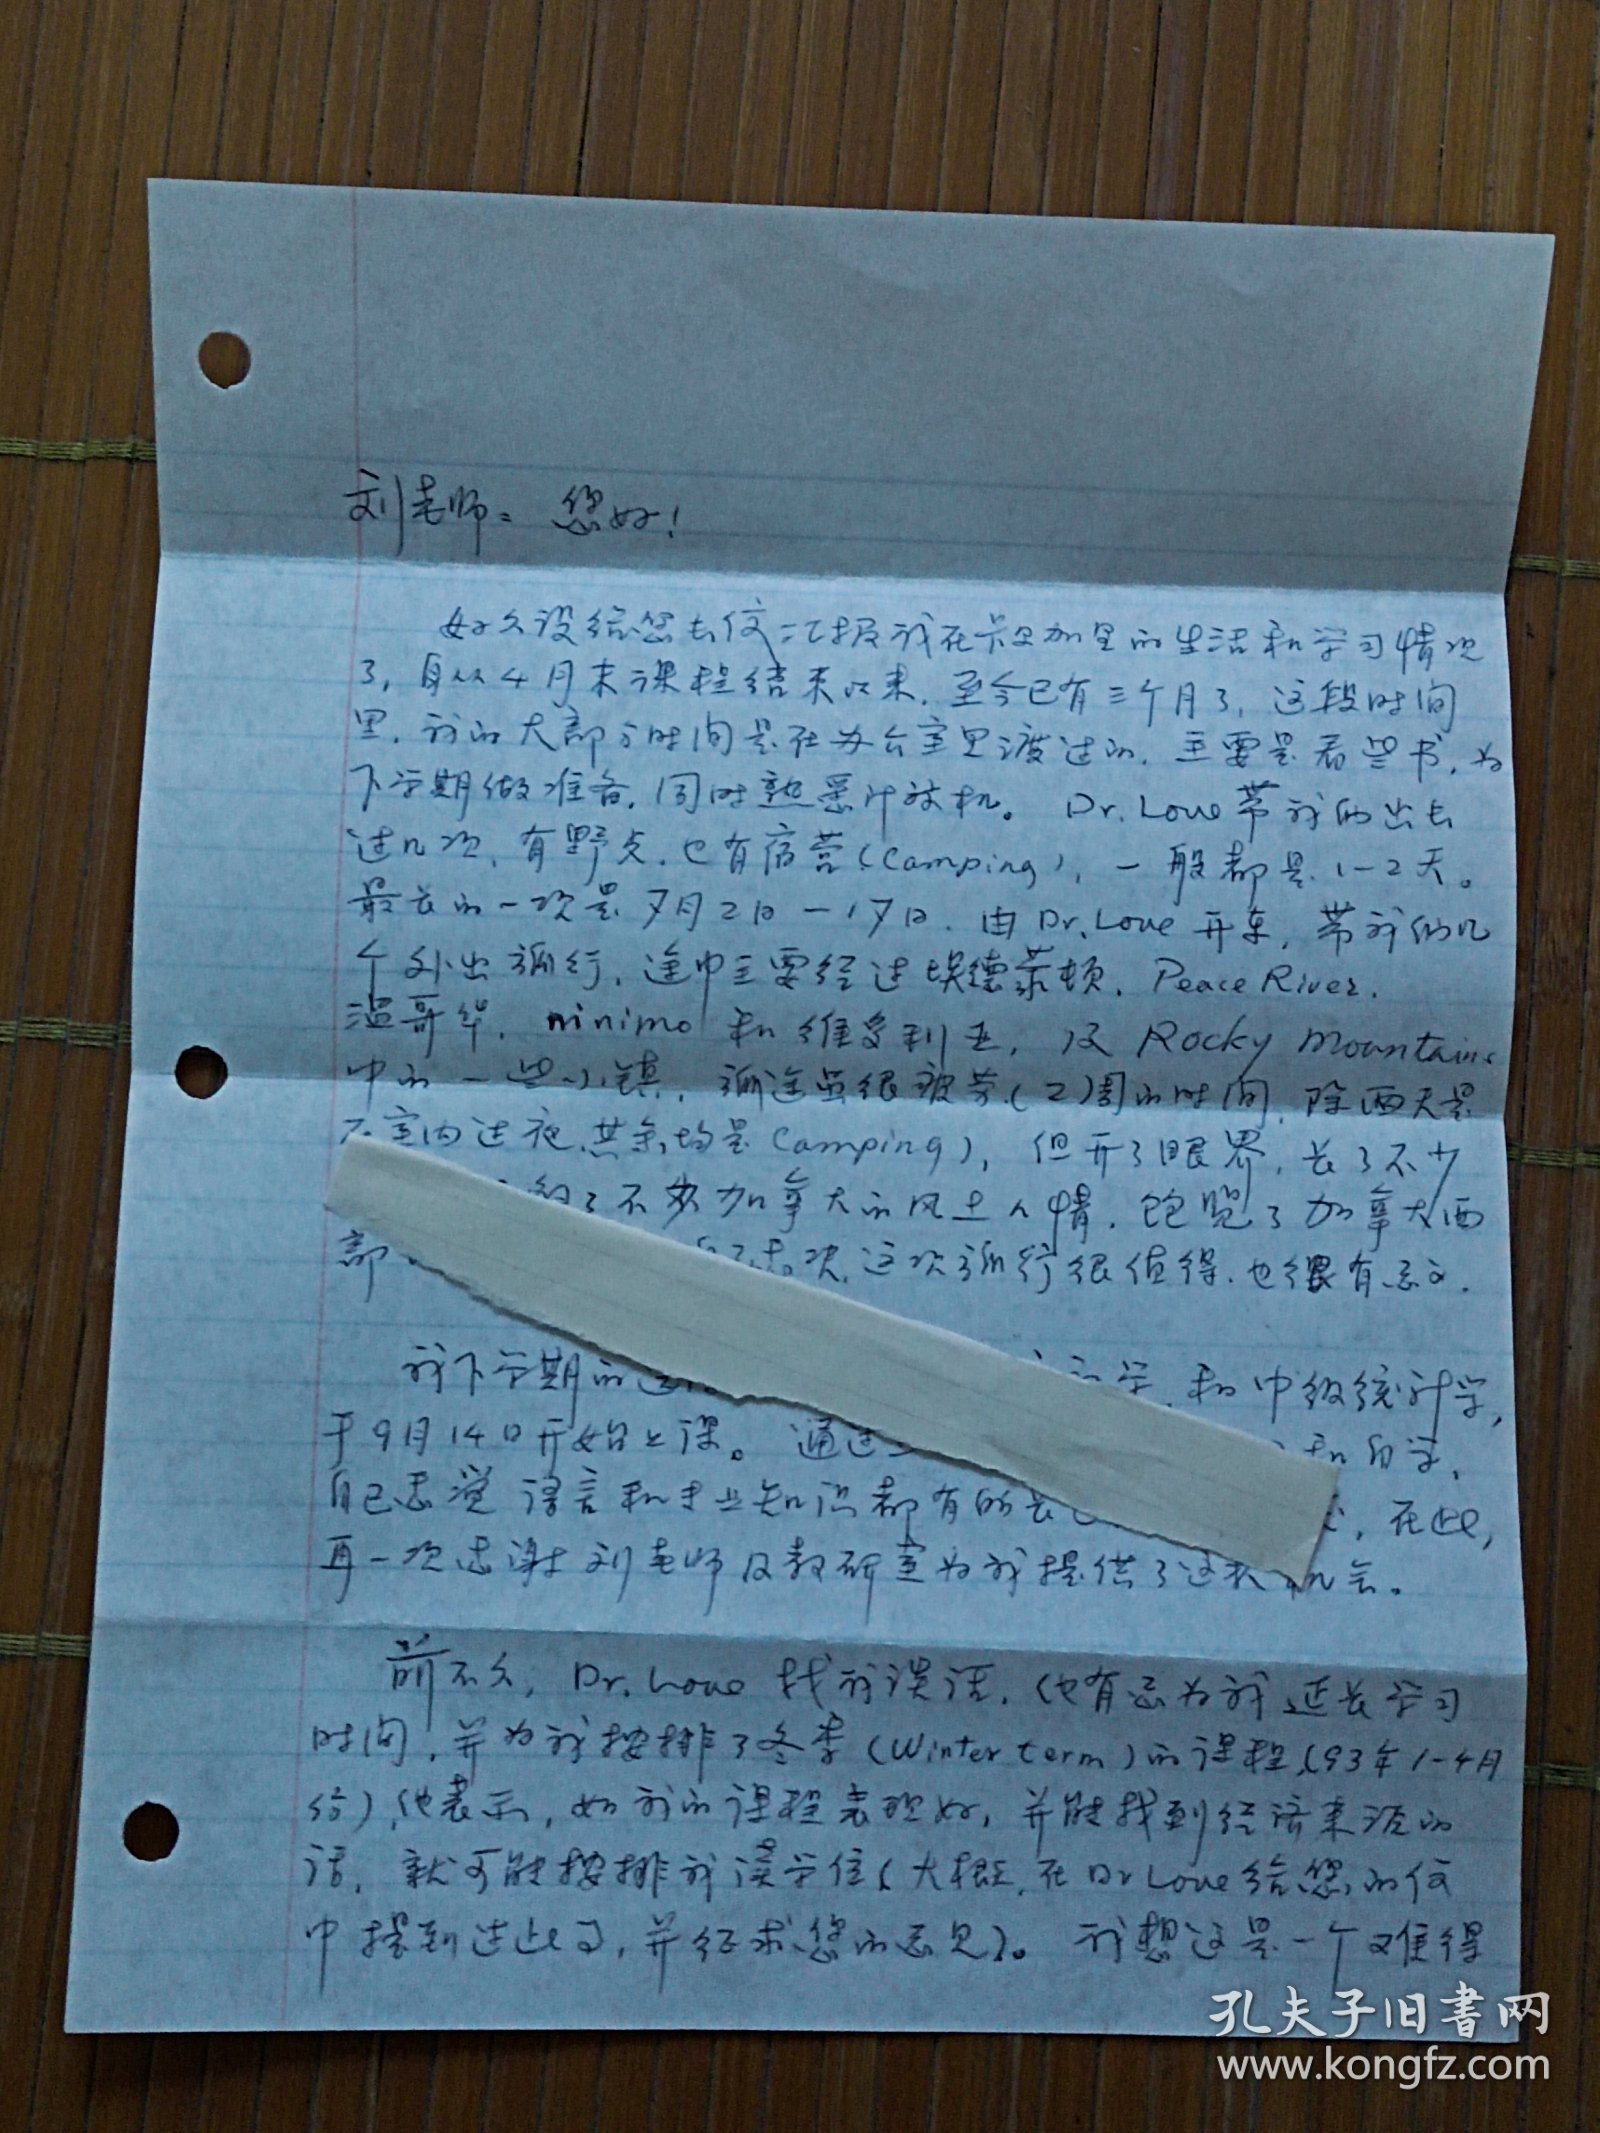 刘老师：您好！
好久没给您去信汇报我在卡加里的生活和学习情况
了，自从4月末课程结束以来，至今已有三个月了，这段时间
里，我的大部分时间是在办公室里渡过的，主要是看些书，为
下学期做准备，同时熟悉计算机。Dr. Love 带我们出去
过几次，有野炙，也有宿营（Camping），一般都是1-2天。
最长的一次是7月2日—17日，由Dr. Love 开车，带我们几
个外出旅行，途中主要经过埃德蒙顿，Peace River，
温哥华，ninimo 和维多利亚，及 Rocky Mountains
中的一些小镇，旅途虽很疲劳（2周的时间，除两天是
在室内过夜，其余均是 Camping），但开了眼界，长了不少
了不少加拿大的风土人情，饱览了加拿大西
部 这次旅行很值得，也很有意义。
我下学期的 学，和中级统计学，
于9月14日开始上课。通过 和自学，
自己感觉语言和专业知识都有所长 ，在此，
再一次感谢刘老师及教研室为我提供了这次机会。
前不久，Dr. Love 找我谈话，他有意为我延长学习
时间，并为我按排了冬季（Winter term）的课程（93年1-4月
份），他表示，如我的课程表现好，并能找到经济来源的
话，就可能按排我读学位（大概，在Dr Love给您的信
中提到过此事，并征求您的意见）。我想这是一个难得
孔夫子旧书网
www.kongfz.com